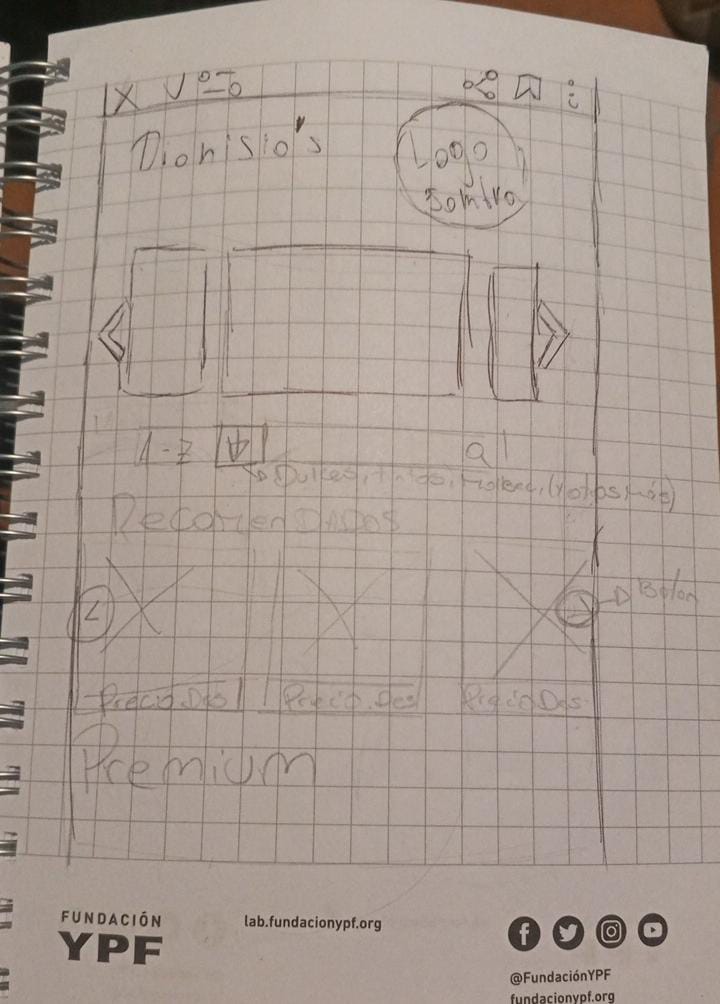 Dionisio's
Logo
Sombra
A-Z
Dulces, Tintos, Malbec, (y otros más)
RecomenDADOS
Boton
Precio.Des
Precio.Des
Precio Des
Premium
FUNDACIÓN
YPF
lab.fundacionypf.org
@FundaciónYPF
fundacionypf.org